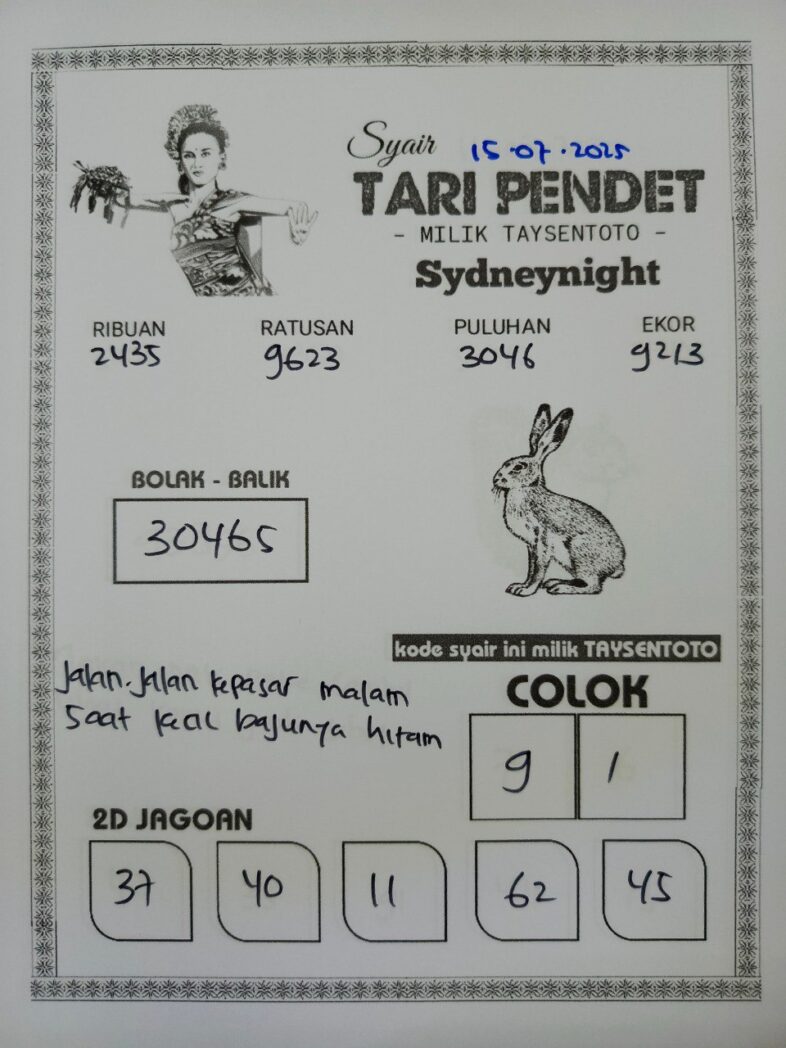 Syair 15.07.2025
TARI PENDET
- MILIK TAYSENTOTO -
Sydneynight
RIBUAN RATUSAN PULUHAN EKOR
2435 9623 3046 9213
BOLAK - BALIK
30465
kode syair ini milik TAYSENTOTO
Jalan-Jalan kepasar malam
Saat kecil bajunya hitam
COLOK
9 1
2D JAGOAN
37 40 11 62 45